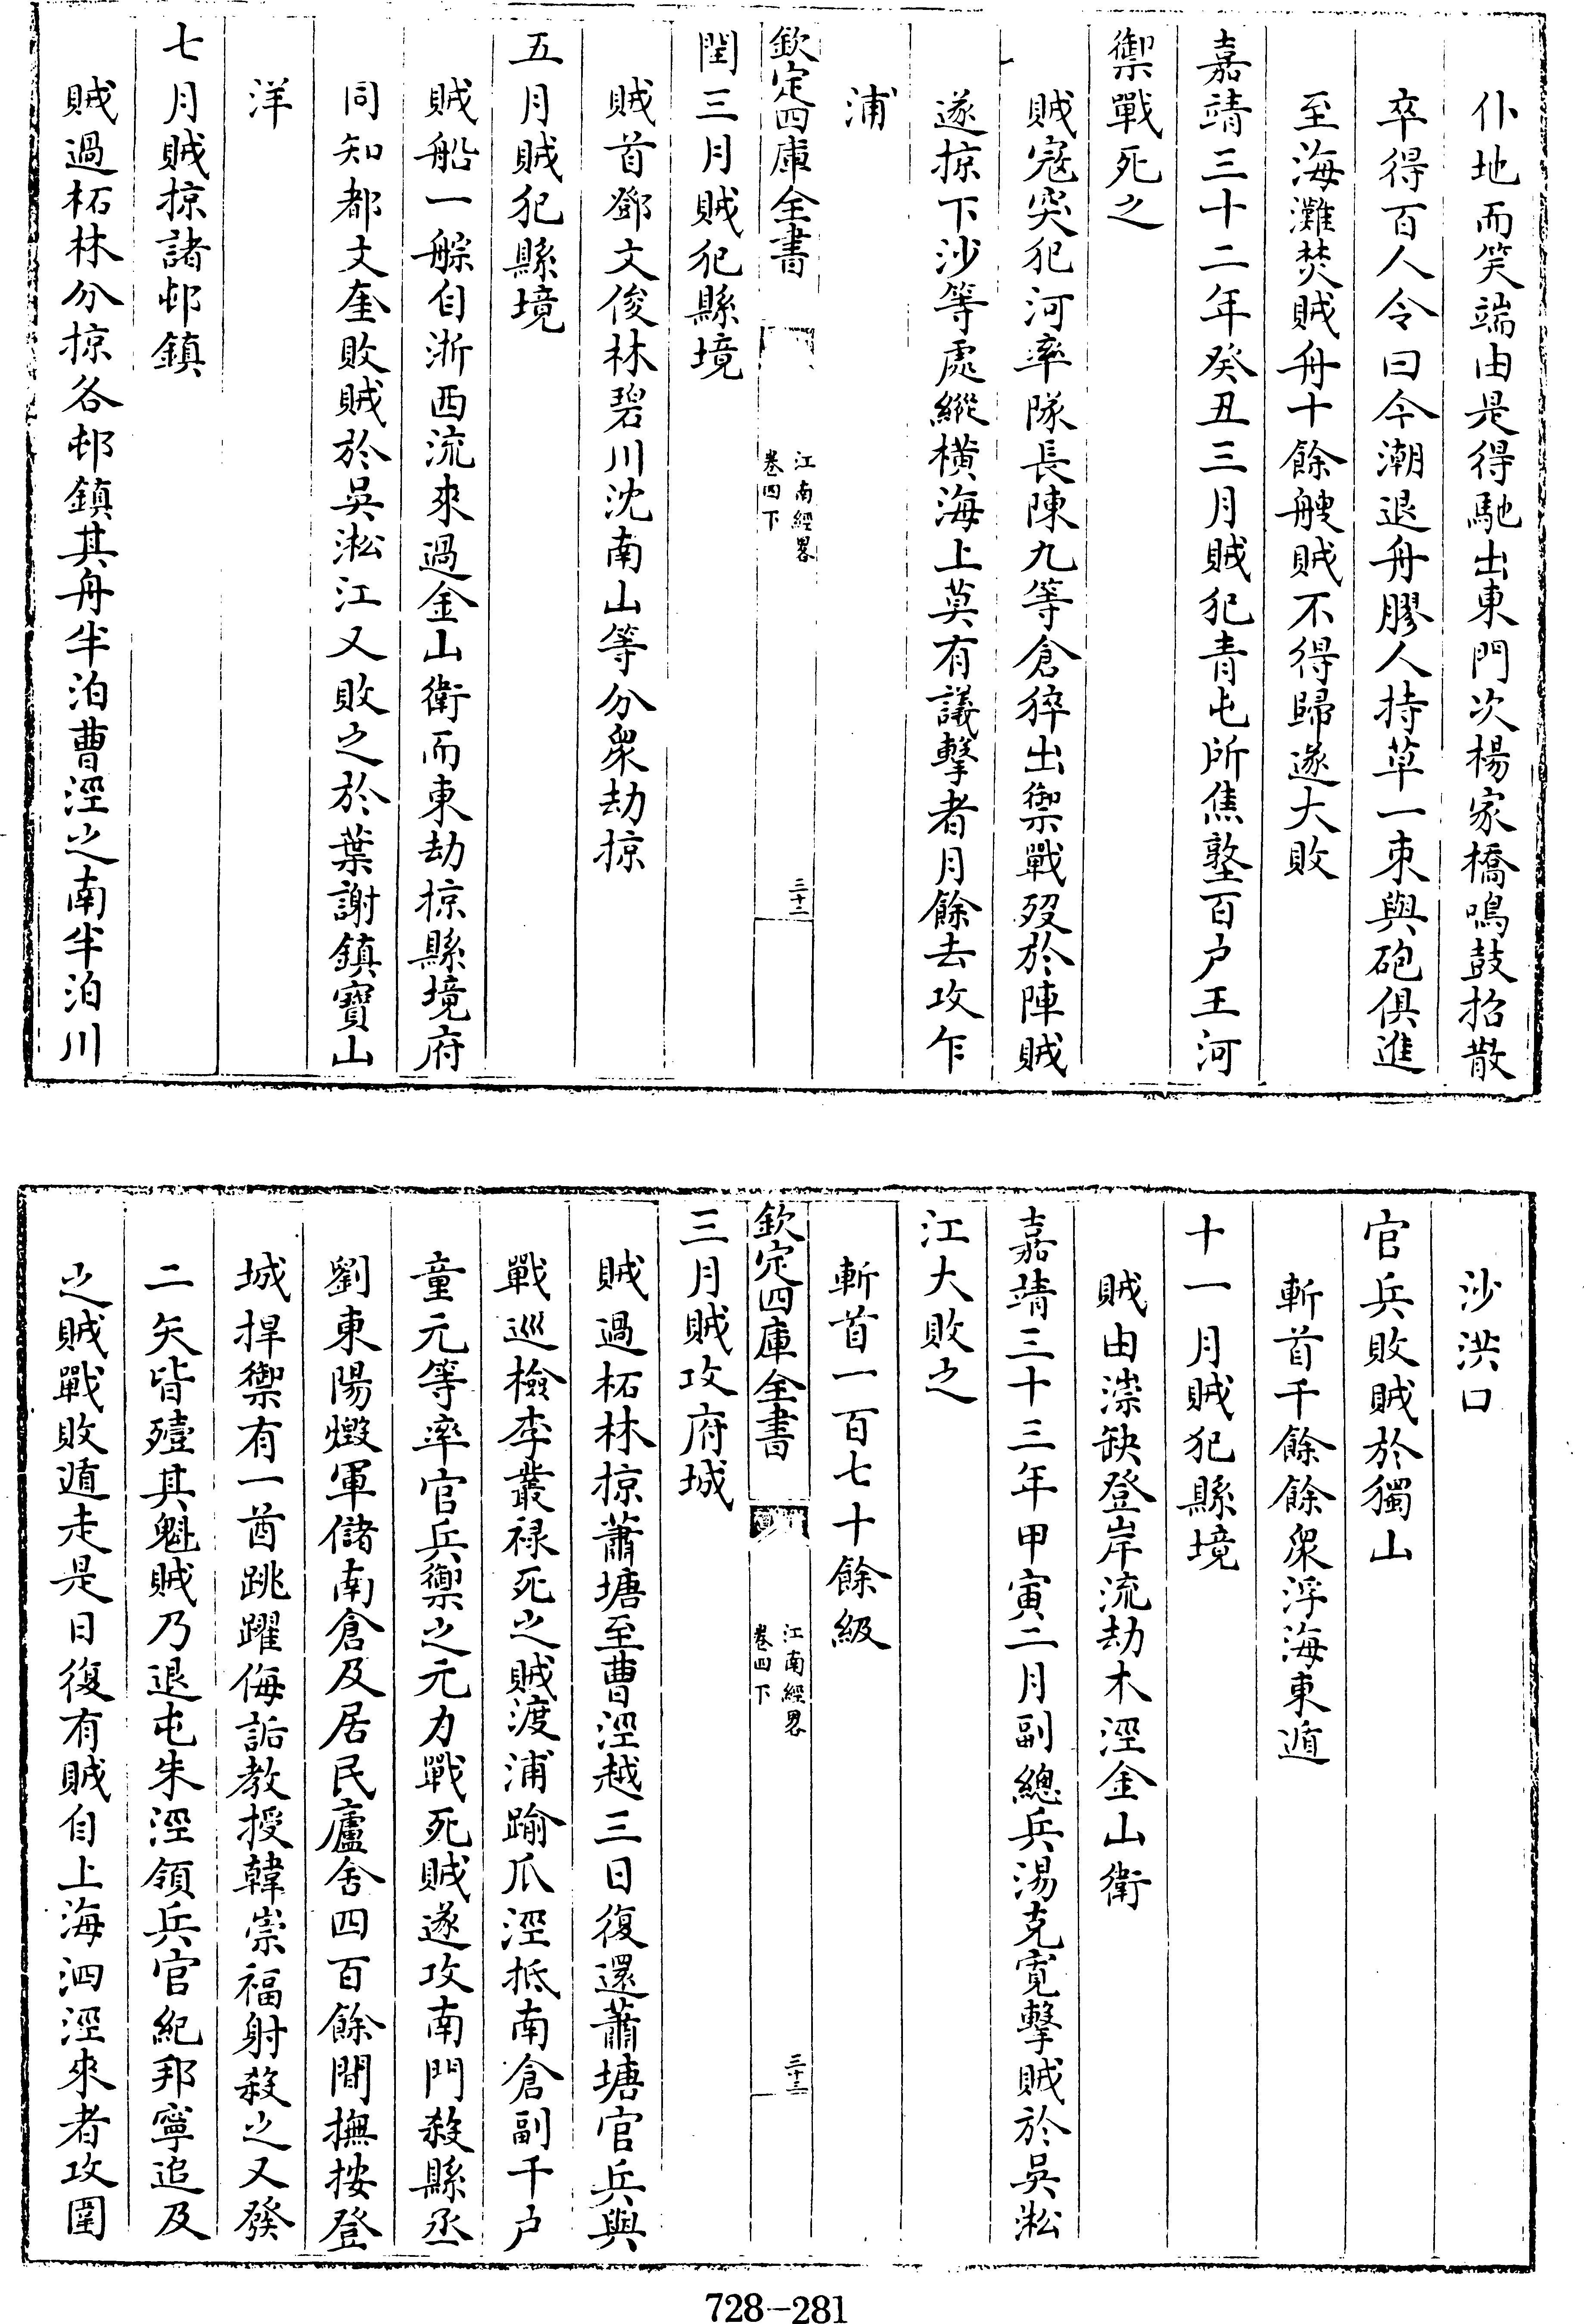 仆地而笑端由是得馳出東門次楊家橋鳴鼓招散
卒得百人令曰今潮退舟膠人持草一束與砲俱進
至海灘焚賊舟十餘艘賊不得歸遂大敗
嘉靖三十二年癸丑三月賊犯青屯所焦墪百户王河
禦戰死之
賊寇突犯河率隊長陳九等倉猝出禦戰歿於陣賊
遂掠下沙等處縱橫海上莫有議擊者月餘去攻乍
浦
欽定四庫全書
江南經畧
卷四下
三十二
閏三月賊犯縣境
賊首鄧文俊林碧川沈南山等分衆劫掠
五月賊犯縣境
賊船一艅自浙西流來過金山衛而東劫掠縣境府
同知都文奎敗賊於吳淞江又敗之於葉謝鎮寶山
洋
七月賊掠諸邨鎮
賊過柘林分掠各邨鎮其舟半泊曹涇之南半泊川
沙洪口
官兵敗賊於獨山
斬首千餘餘衆浮海東遁
十一月賊犯縣境
賊由漴缺登岸流劫木涇金山衛
嘉靖三十三年甲寅二月副總兵湯克寛擊賊於吳淞
江大敗之
斬首一百七十餘級
欽定四庫全書
江南經畧
卷四下
三十三
三月賊攻府城
賊過柘林掠蕭塘至曹涇越三日復還蕭塘官兵與
戰巡檢李叢禄死之賊渡浦踰爪涇抵南倉副千户
童元等率官兵禦之元力戰死賊遂攻南門殺縣丞
劉東陽燬軍儲南倉及居民廬舍四百餘間撫按登
城捍禦有一酋跳躍侮詬教授韓崇福射殺之又發
二矢皆殪其魁賊乃退屯朱涇領兵官紀邦寧追及
之賊戰敗遁走是日復有賊自上海泗涇來者攻圍
728-281